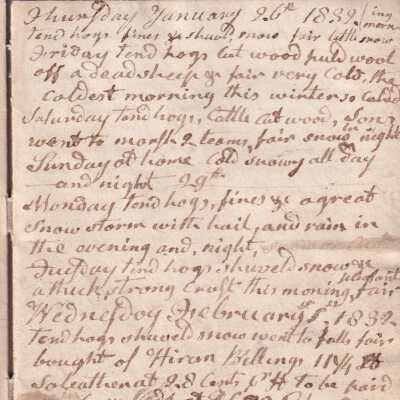 Thursday January 26th 1832 / ing
tend hogs fines & shuvd snow fair little snow morn
Friday tend hogs cut wood puld wool
off a dead sheep & fair very cold, the
coldest morning this winter so called
Saturday tend hogs, Cattle cut wood, Son
went to marsh 2 teams, fair snow in night
Sunday at home Cold snowy all day
and night 29th
Monday tend hogs, fines & a great
snow storm with hail, and rain in
the evening and, night,
Tuesday tend hogs shuveld snow &
a thick, strong crust this morning, fair pleasant
Wednesday February 1st, 1832
tend hogs shuveld snow went to falls fair
bought of Hiran Billings 11 3/4 lb
so leather at 28 Cents pr lb to be paid